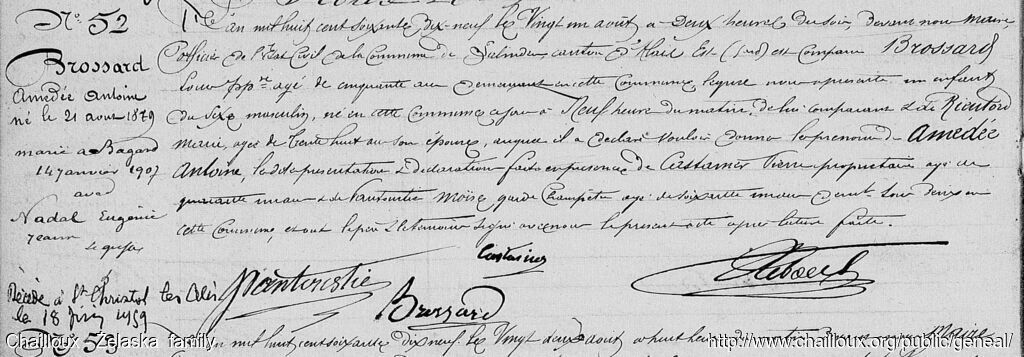 N° 52
Brossard
Amédée Antoine
né le 21 aout 1879
marié a Bagard
14 janvier 1907
avec
Nadal Eugénie
Jeanne
le greffier
Décédé à St Christol les Alès
le 18 1959
N° 53
L'an mil huit cent soixante dix-neuf le vingt un août a deux heures du soir, devant nous Maire
officier de l'Etat Civil de la Commune de Salindres, canton d'Alais Est (Gard) est comparu Brossard
Louis agé de cinquante ans demeurant en cette commune, lequel nous a présenté un enfant
du sexe masculin, né en cette commune ce jour à neuf heures du matin, de lui comparant & de
Marie, agée de trente huit ans son épouse, auquel il a déclaré vouloir donner les prénoms de Amédée
Antoine, les dites présentation & déclaration faites en présence de Castanier Pierre propriétaire agé de
quarante un ans & de Moïse garde champêtre agé de soixante un ans tous deux en
cette commune, et ont le père & les témoins signé avec nous le présent acte après lecture faite.
Castanier
Brossard
L'an mil huit cent soixante dix neuf le vingt deux août a huit heures Maire
Chailloux - Zelaska family
http://www.chailloux.org/public/geneal/